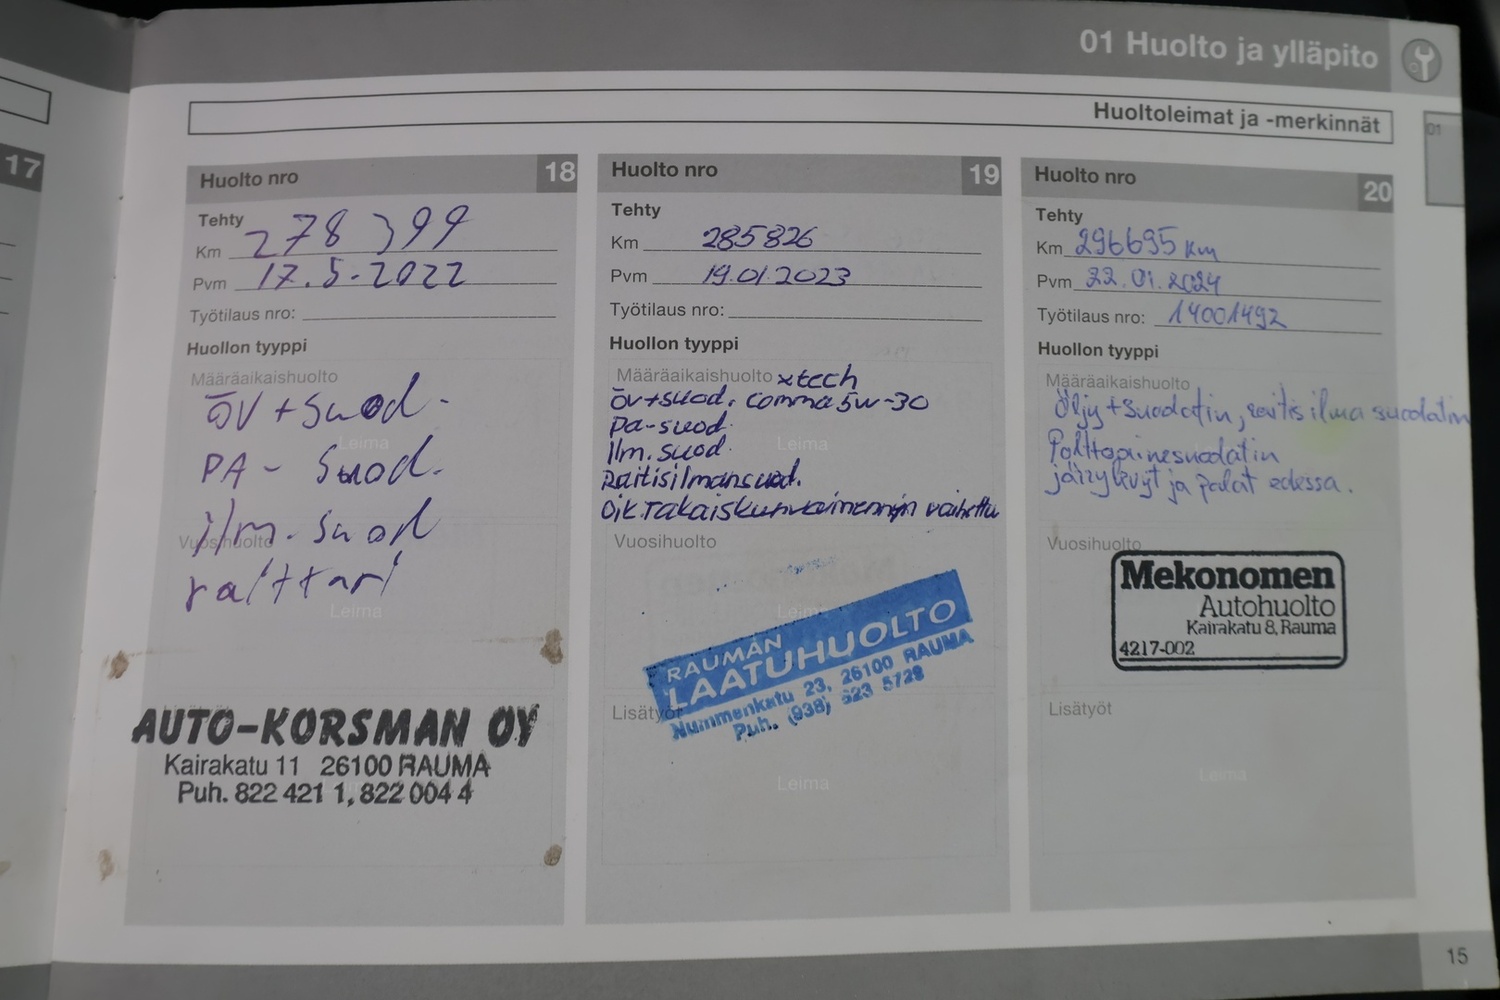 01 Huolto ja ylläpito
Huoltoleimat ja -merkinnät
01
17
Huolto nro 18
Tehty
Km 278 399
Pvm 17.5-2022
Työtilaus nro:
Huollon tyyppi
Määräaikaishuolto
öV + suod -
Leima
PA - Suod.
ilm. suod
Vuosihuolto
raittari
Leima
AUTO-KORSMAN OY
Kairakatu 11 26100 RAUMA
Puh. 822 421 1, 822 004 4
Huolto nro 19
Tehty
Km 285826
Pvm 19.01.2023
Työtilaus nro:
Huollon tyyppi
Määräaikaishuolto xtech
öv+suod. comma 5w-30
Pa-suod.
Leima
Ilm. suod.
Raitisilmansuod.
Oik. takaiskunvaimennin vaihettu
Vuosihuolto
Leima
RAUMAN
LAATUHUOLTO
Nummenkatu 23, 26100 RAUMA
Puh. (938) 823 5728
Lisätyöt
Leima
Huolto nro 20
Tehty
Km 296695 km
Pvm 22.01.2024
Työtilaus nro: 14001492
Huollon tyyppi
Määräaikaishuolto
Öljy + suodatin, raitis ilma suodatin
Polttoainesuodatin
jarrylevyt ja palat edessa.
Vuosihuolto
Mekonomen
Autohuolto
Kairakatu 8, Rauma
4217-002
Lisätyöt
Leima
15